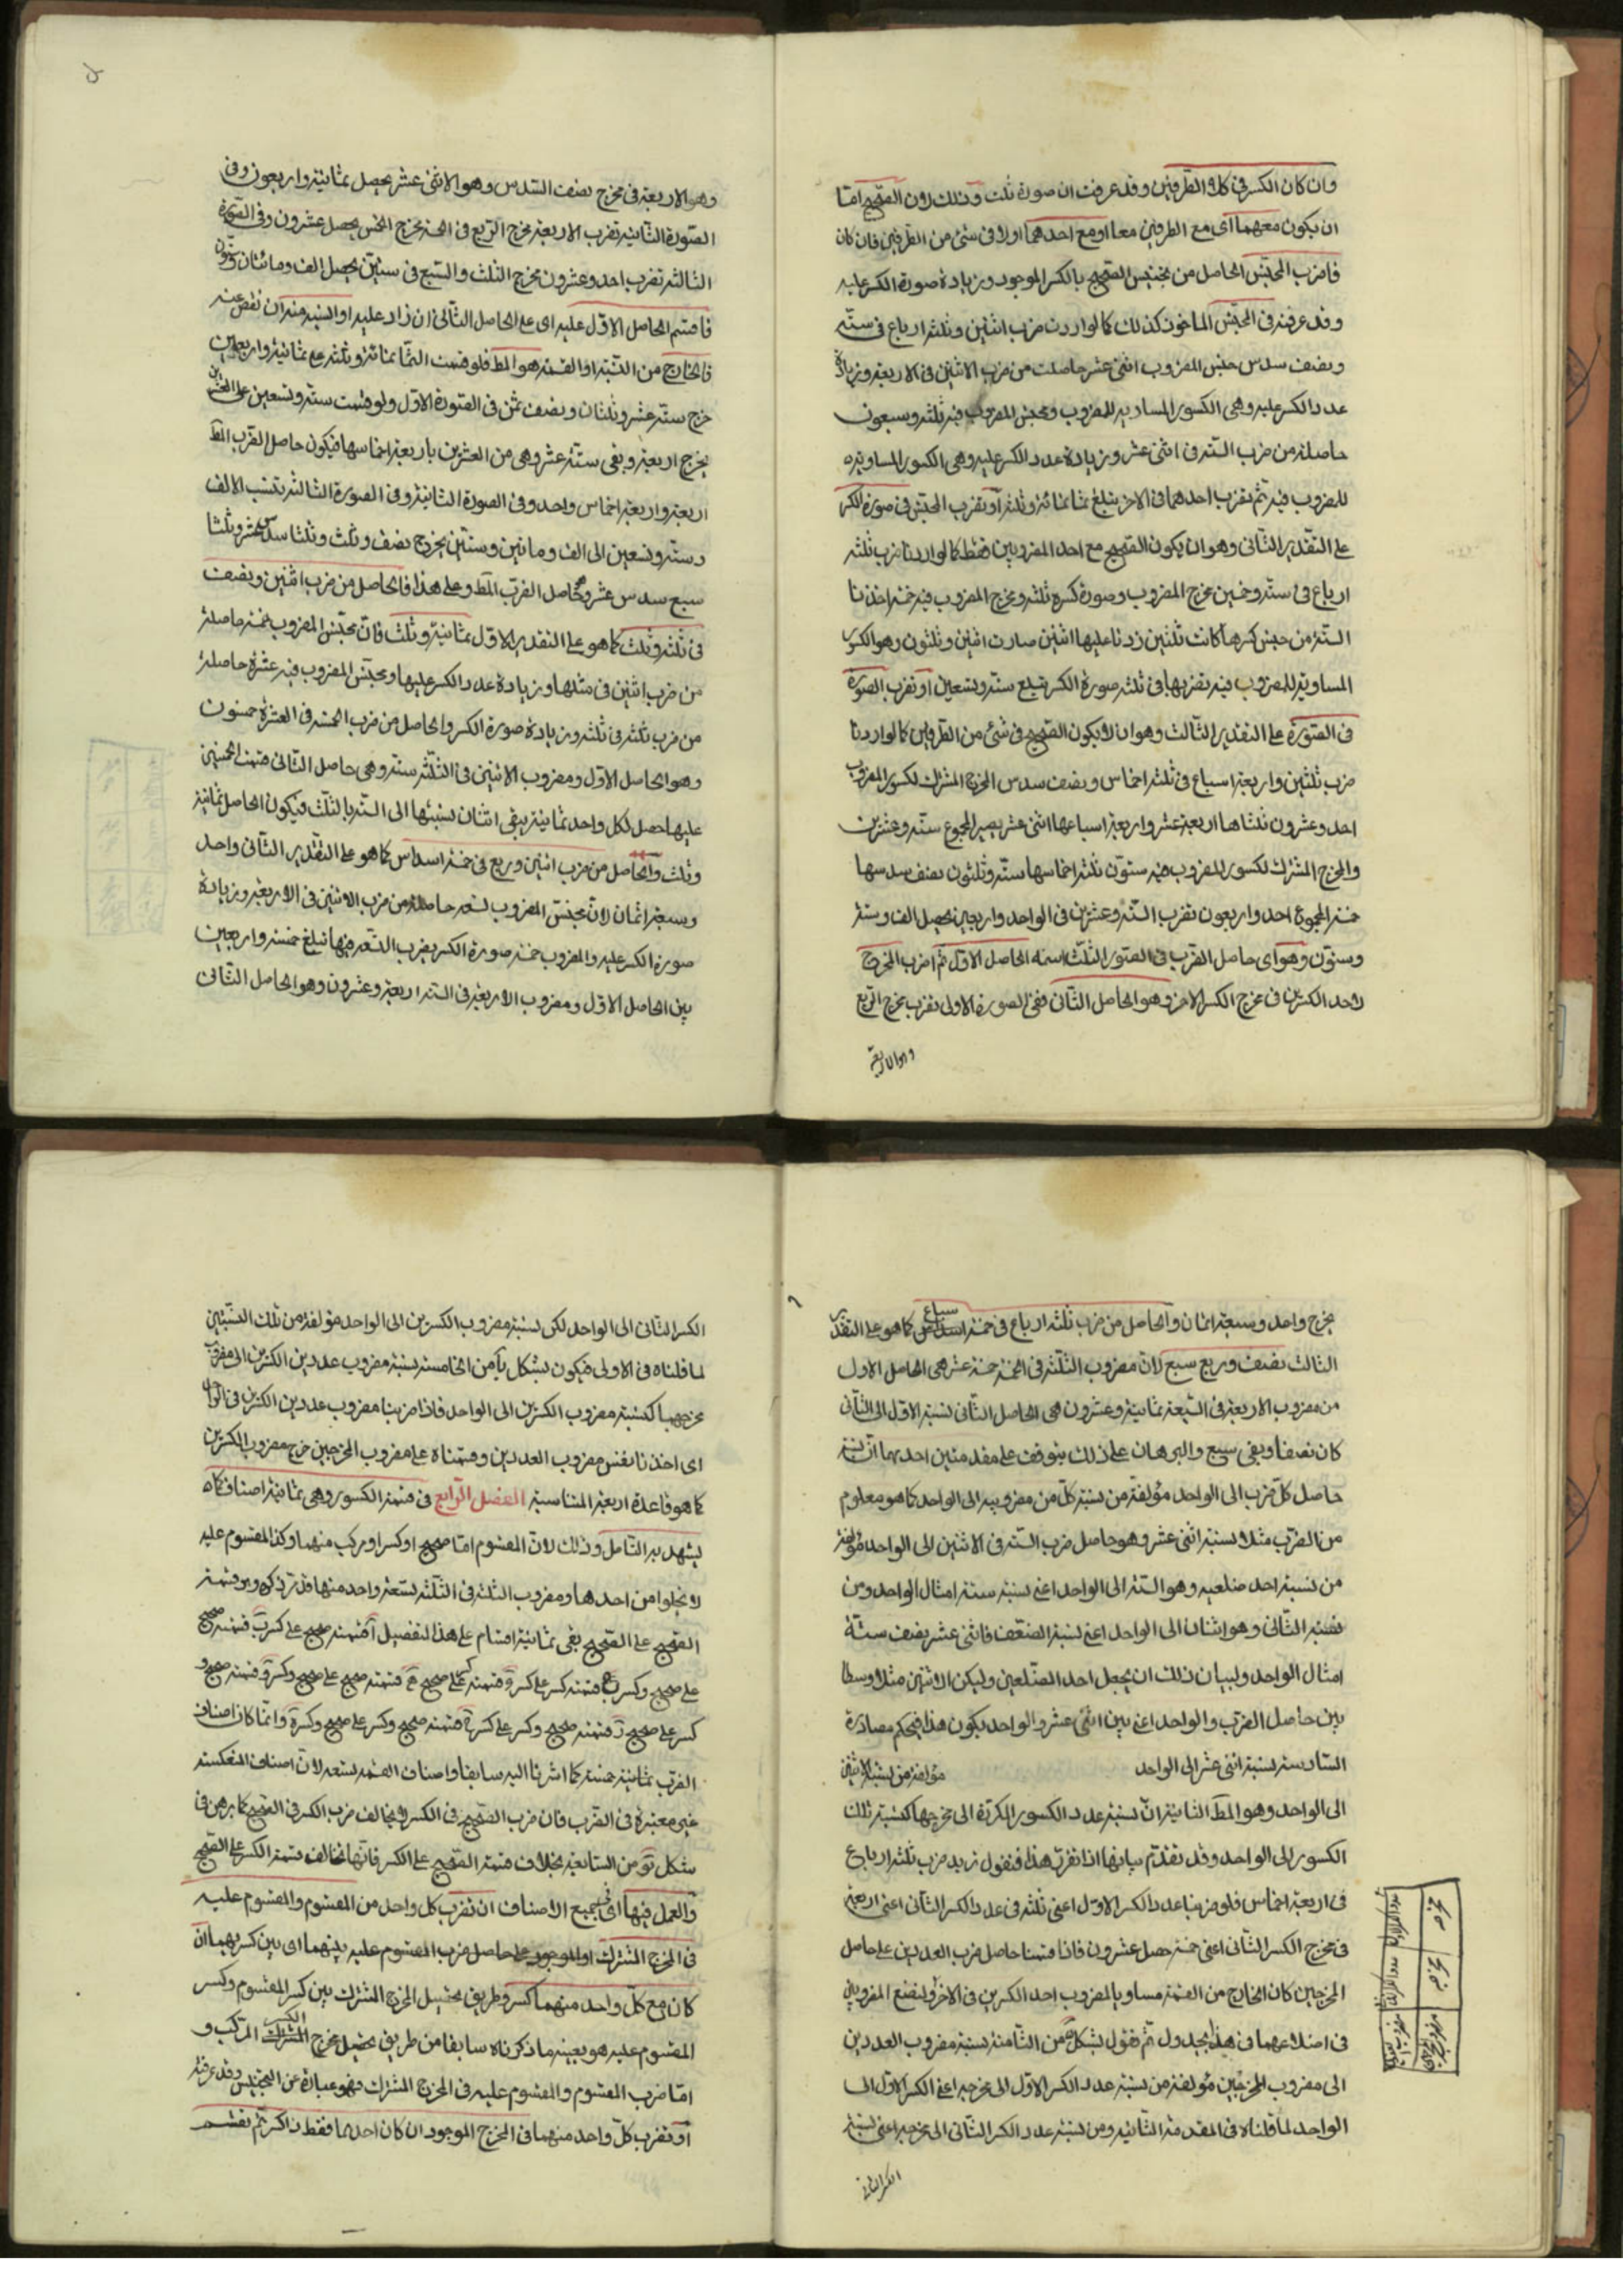 وان كان الكسر في كلا الطرفين وقد عرفت ان صورة ثلث وذلك لان الصحيح امّا
ان يكون معهما اى مع الطرفين معا او مع احدهما او لا فى شئ من الطرفين فان كان
فاضرب المجنّس الحاصل من تجنيس الصحيح بالكسر الموجود وزيادة صورة الكسر عليه
وقد عرفته فى المجنّس الماخوذ كذلك كما لو اردت ضرب اثنين وثلثة ارباع فى ستّه
ونصف سدس جنس المضروب اثنى عشر حاصلت من ضرب الاثنين فى الاربعة وزيادة
عدد الكسر عليه وهى الكسور المساويه للمضروب ومجنس المضروب فيه ثلثه وسبعون
حاصلة من ضرب السّته فى اثنى عشر وزيادة عدد الكسر عليه وهى الكسور المساويه
للمضروب فيه ثم نضرب احدهما فى الاخر يبلغ ثمانمائة وثلثة او تضرب المجنّس فى صورة الكسر
على التقدير الثّانى وهو ان يكون الصحيح مع احد المضروبين فقط كما لو اردنا ضرب ثلثه
ارباع فى ستّه وخمسين مخرج المضروب وصورة كسره ثلثه ومخرج المضروب فيه خمسه اخذنا
الستّة من جنس كسرها كانت ثلثين زدنا عليها اثنين صارت اثنين وثلثون وهو الكسور
المساوية للمضروب فيه نضربها فى ثلثه صورة الكسر تبلغ ستّه وتسعين او تضرب الصّورة
فى الصّورة على التقدير الثّالث وهو ان لا يكون الصحيح فى شئ من الطرفين كما لو اردنا
ضرب ثلثين واربعة اسباع فى ثلثه اخماس ونصف سدس المخرج المشترك لكسور المضروب
احد وعشرون ثلثاها اربعة عشر واربعة اسباعها اثنى عشر يصير المجموع ستّه وعشرين
والمخرج المشترك لكسور المضروب فيه ستّون ثلثه اخماسها ستّه وثلثون نصف سدسها
خمسة المجموع احد واربعون نضرب السّتّه وعشرين فى الواحد واربعين يحصل الف وستّة
وستّون وهو اى حاصل الضرب فى الصّور الثلث اسمه الحاصل الاوّل ثم اضرب المخرج
لاحد الكسرين فى مخرج الكسر الاخر وهو الحاصل الثّانى ففى الصورة الاولى نضرب مخرج الرّبع
وهو الاربعة
وهو الاربعة فى مخرج نصف السّدس وهو الاثنى عشر يحصل ثمانية واربعون وفى
الصّورة الثّانية نضرب الاربعة مخرج الرّبع فى الخمسة مخرج الخمس يحصل عشرون وفى الصّورة
الثالثه نضرب احد وعشرون مخرج الثلث والسّبع فى ستّين يحصل الف ومائتان وستّون
فاقسم الحاصل الاوّل عليه اى على الحاصل الثّانى ان زاد عليه او انسبه منه ان نقص عنه
فالخارج من النّسبة او القسمة هو المط فلو قسمت الثّمانمائة وثلثه على ثمانية واربعين
خرج ستّه عشر وثلثان ونصف ثمن فى الصّورة الاوّل ولو قسمت ستّه وتسعين على العشرين
يخرج اربعة ويبقى ستّة عشر وهى من العشرين باربعة اخماسها فيكون حاصل الضرب المط
اربعة واربعة اخماس واحد وفى الصورة الثانية وفى الصورة الثالثه بنسب الالف
وستّه وتسعين الى الف ومايتين وستّين يخرج نصف وثلث وثلثا سدس عشر وثلثا
سبع سدس عشر وحاصل الضرب المط وعلى هذا فالحاصل من ضرب اثنين ونصف
فى ثلثه وثلث كما هو على التقدير الاوّل ثمانية وثلث فانّ مجنّس المضروب خمسة حاصلة
من ضرب اثنين فى مثلها وزيادة عدد الكسر عليها ومجنّس المضروب فيه عشرة حاصلة
من ضرب ثلثه فى ثلثه وزيادة صورة الكسر والحاصل من ضرب الخمسه فى العشرة خمسون
وهو الحاصل الاوّل ومضروب الاثنين فى الثّلثه ستّه وهى حاصل الثّانى قسمت الخمسين
عليها حصل لكل واحد ثمانية يبقى اثنان نسبتها الى السّتّه بالثلث فيكون الحاصل ثمانية
وثلث والحاصل من ضرب اثنين وربع فى خمسة اسداس كما هو على التقدير الثّانى واحد
وسبعة اثمان لانّ مجنس المضروب تسعه حاصلة من ضرب الاثنين فى الاربعة وزيادة
صورة الكسر عليه والمضروب خمسه صورة الكسر بضرب التّسعه فيها تبلغ خمسه واربعين
بين الحاصل الاوّل ومضروب الاربعة فى السّتّه اربعة وعشرون وهو الحاصل الثّانى
يخرج واحد وسبعة اثمان والحاصل من ضرب ثلثه ارباع فى خمسة اسباع كما هو على التقدير
الثالث نصف وربع سبع لانّ مضروب الثّلثه فى الخمسة خمسة عشر هى الحاصل الاول
من مضروب الاربعة فى السّبعة ثمانية وعشرون هى الحاصل الثّانى لنسبة الاوّل الى الثّانى
كان نصفا وبقى سبع والبرهان على ذلك يتوقف على مقدمتين احديهما انّ نسبة
حاصل كل ضرب الى الواحد مؤلفة من نسبة كلّ من مضروبيه الى الواحد كما هو معلوم
من الضرب مثلا نسبة اثنى عشر وهو حاصل ضرب السّته فى الاثنين الى الواحد مؤلفة
من نسبة احد ضلعيه وهو السّتّة الى الواحد اعنى نسبة ستة امثال الواحد ومن
نسبة الثّانى وهو اثنان الى الواحد اعنى نسبة الضّعف فاثنى عشر ضعف ستّة
امثال الواحد ولبيان ذلك ان يجعل احد الضّلعين وليكن الاثنين مثلا وسطا
بين حاصل الضرب والواحد اعنى بين اثنى عشر والواحد يكون هذا فبحكم مصادرة
السّادسه نسبة اثنى عشر الى الواحد مؤلفة من نسبة الاثنين
الى الواحد وهو المط الثانية انّ نسبة عدد الكسور المكرّرة الى مخرجها كنسبة تلك
الكسور الى الواحد وقد تقدّم بيانها اذا تقرّر هذا فنقول نريد ضرب ثلثه ارباع
فى اربعة اخماس فلو ضربنا عدد الكسر الاوّل اعنى ثلثه فى عدد الكسر الثّانى اعنى اربعة
فى مخرج الكسر الثّانى اعنى خمسة حصل عشرون فاذا قسمنا حاصل ضرب العددين على حاصل
المخرجين كان الخارج من القسمة مساويا لمضروب احد الكسرين فى الاخر ولنضع المضروبين
فى اضلاعهما فى هذا الجدول ثم نقول بشكل من الثّامنة نسبة مضروب العددين
الى مضروب المخرجين مؤلفة من نسبة عدد الكسر الاوّل الى مخرجه اعنى الكسر الاوّل الى
الواحد لما قلناه فى المقدمة الثّانيه ومن نسبة عدد الكسر الثّانى الى مخرجه اعنى نسبة
الكسر الثانى
الكسر الثّانى الى الواحد لكن نسبة مضروب الكسرين الى الواحد مؤلفة من تلك النسبتين
لما قلناه فى الاولى فيكون بشكل يا من الخامسة نسبة مضروب عددين الكسرين الى مضروب
مخرجهما كنسبة مضروب الكسرين الى الواحد فاذا ضربنا مضروب عددين الكسرين فى الواحد
اى اخذنا نفس مضروب العددين وقسمناه على مضروب المخرجين خرج مضروب الكسرين
كما هو قاعدة اربعة المتناسبة الفصل الرّابع فى قسمة الكسور وهى ثمانية اصناف كما
يشهد به التامل وذلك لانّ المقسوم امّا صحيح او كسر او مركب منهما وكذا المقسوم عليه
لا يخلوا من احدها ومضروب الثلثه فى الثّلثه تسعة واحد منها قد مرّ ذكره وهو قسمة
الصّحيح على الصّحيح بقى ثمانية اقسام على هذا التفصيل آ قسمة صحيح على كسر ب قسمة صحيح
على صحيح وكسر ج قسمة كسر على كسر د قسمة كسر على صحيح ه قسمة صحيح على صحيح وكسر و قسمة صحيح و
كسر على صحيح ز قسمة صحيح وكسر على كسر ح قسمة صحيح وكسر على صحيح وكسر وانّما كان اصناف
الضّرب ثمانية خمسة كما اشرنا اليه سابقا واصناف القسمه تسعه لانّ اصناف المنعكسة
غير معتبرة فى الضّرب فان ضرب الصّحيح فى الكسر لا يخالف ضرب الكسر فى الصّحيح كما برهن فى
شكل من السّابعة بخلاف قسمة الصّحيح على الكسر فانّها تخالف قسمة الكسر على الصّحيح
والعمل فيها اى فى جميع الاصناف ان تضرب كل واحد من المقسوم والمقسوم عليه
فى المخرج المشترك او الموجود على حاصل ضرب المقسوم عليه بينهما اى بين كسريهما ان
كان مع كلّ واحد منهما كسر وطريق تحصيل المخرج المشترك بين كسر المقسوم وكسر
المقسوم عليه هو بعينه ما ذكرناه سابقا من طريق تحصيل مخرج الكسر المركّب و
امّا ضرب المقسوم والمقسوم عليه فى المخرج المشترك فهو عبارة عن التجنيس وقد عرفته
او تضرب كلّ واحد منهما فى المخرج الموجود ان كان احدهما فقط ذا كسر ثم تقسم